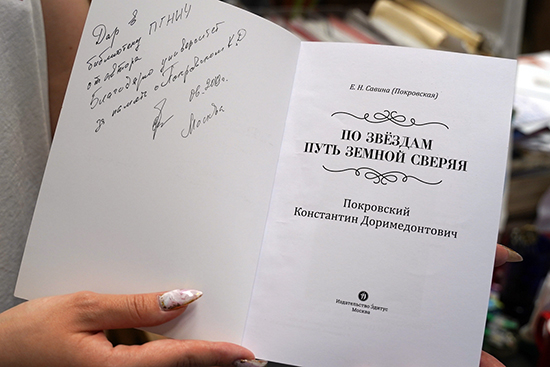 Дар в
библиотеку ПГНИУ
от автора
Благодарю университет
за память о Покровском К.Д
Москва
Е. Н. Савина (Покровская)
ПО ЗВЁЗДАМ
ПУТЬ ЗЕМНОЙ СВЕРЯЯ
Покровский
Константин Доримедонтович
Издательство Эдитус
Москва